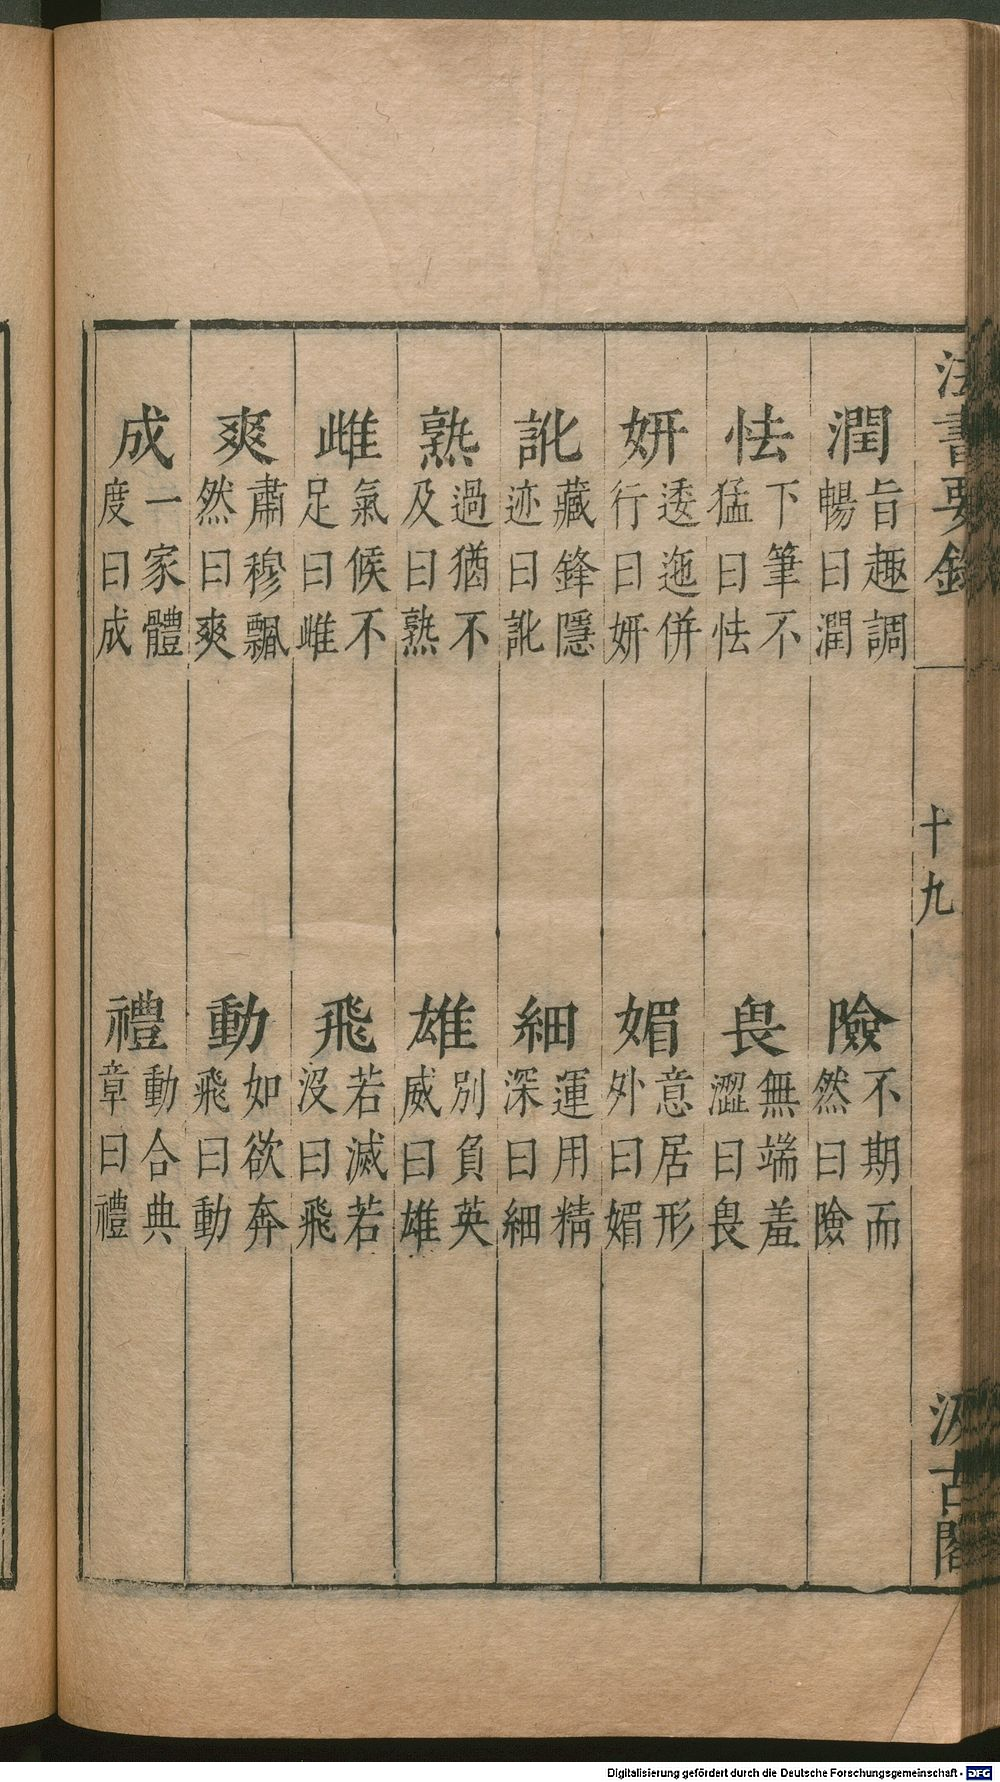 法書要錄
十九
汲古閣
潤 旨趣調暢曰潤
險 不期而然曰險
怯 下筆不猛曰怯
畏 無端羞澀曰畏
妍 逶迤併行曰妍
媚 意居形外曰媚
訛 藏鋒隱迹曰訛
細 運用精深曰細
熟 過猶不及曰熟
雄 別負英威曰雄
雌 氣候不足曰雌
飛 若滅若沒曰飛
爽 肅穆飄然曰爽
動 如欲奔飛曰動
成 一家體度曰成
禮 動合典章曰禮
Digitalisierung gefördert durch die Deutsche Forschungsgemeinschaft - DFG